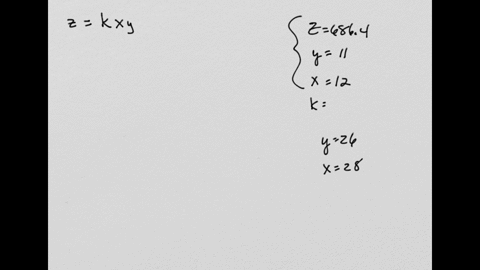 z = kxy
z=686.4
y= 11
x =12
k=
y=26
x=28